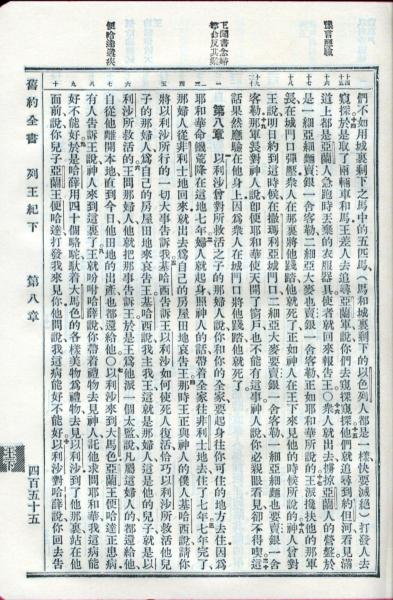 豫言應驗
便哈達遘疾
十四
十五
十六
十七
十八
十九
二十
一
二
三
四
五
六
七
八
九
十
們不如用城裏剩下之馬中的五匹馬（馬和城裏剩下的以色列人都是一樣快要滅絕）打發人去
窺探於是取了兩輛車和馬王差人去追尋亞蘭軍說你們去窺探窺探他們就追尋到約但河看見滿
道上都是亞蘭人急跑時丟棄的衣服器具使者就回來報告王○衆人就出去擄掠亞蘭人的營盤於
是一細亞細麵賣銀一舍客勒二細亞大麥也賣銀一舍客勒正如耶和華所說的王派攙扶他的那軍
長在城門口彈壓衆人在那裏將他踐踏他就死了正如神人在王下來見他的時候所說的神人曾對
王說明日約到這時候在撒瑪利亞城門口二細亞大麥要賣銀一舍客勒一細亞細麵也要賣銀一舍
客勒那軍長對神人說即便耶和華使天開了窗戶也不能有這事神人說你必親眼看見卻不得喫這
話果然應驗在他身上因爲衆人在城門口將他踐踏他就死了
第八章 以利沙曾對所救活之子的那婦人說你和你的全家要起身往你可住的地方去住因爲
耶和華命饑荒降在這地七年婦人就起身照神人的話帶着全家往非利士地去住了七年七年完了
那婦人從非利士地回來就出去爲自己的房屋田地哀告王那時王正與神人的僕人基哈西說請你
將以利沙所行的一切大事告訴我基哈西告訴王以利沙如何使死人復活恰巧以利沙所救活他兒
子的那婦人爲自己的房屋田地來哀告王基哈西說我主我王這就是那婦人這是他的兒子就是以
利沙所救活的王問那婦人他就把那事告訴王於是王爲他派一個太監說凡屬這婦人的都還給他
自從他離開本地直到今日他田地的出產也都還給他○以利沙來到大馬色亞蘭王便哈達正患病
有人告訴王說神人來到這裏了王就吩咐哈薛說你帶着禮物去見神人託他求問耶和華我這病能
好不能好於是哈薛用四十個駱駝馱着大馬色的各樣美物爲禮物去見以利沙到了他那裏站在他
面前說你兒子亞蘭王便哈達打發我來見你他問說我這病能好不能好以利沙對哈薛說你回去告
舊約全書 列王紀下 第八章
王下
四百五十五